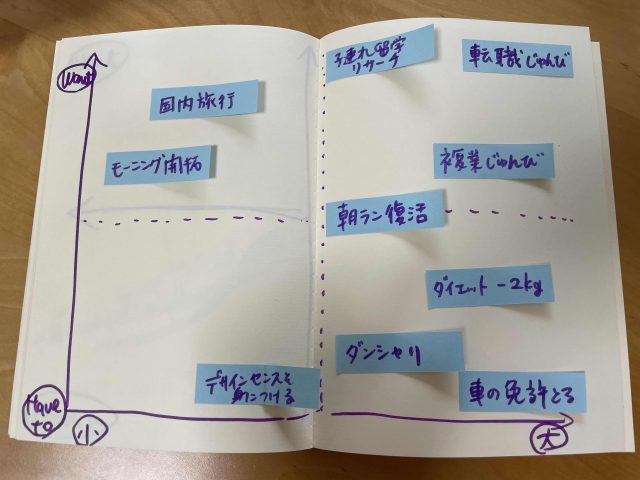 Want
子連れ留学
リサーチ
転職じゅんび
国内旅行
モーニング開拓
複業じゅんび
朝ラン復活
ダイエット -2kg
ダンシャリ
デザインセンスを
身につける
車の免許とる
Have
to
小
大